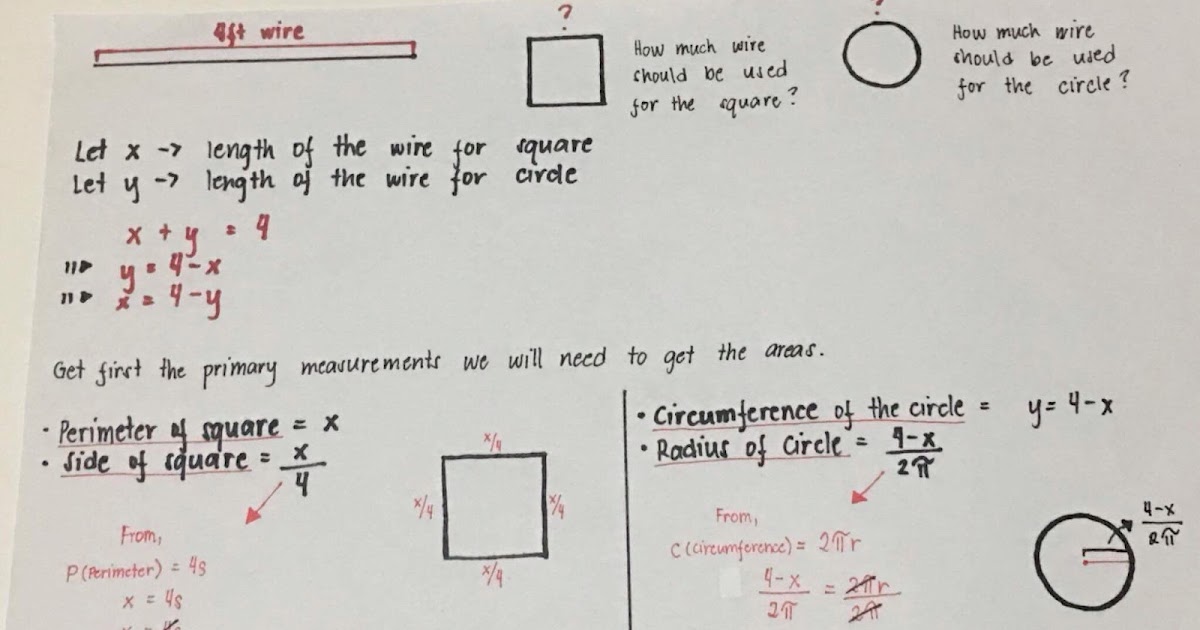 4ft wire
?
How much wire
should be used
for the square?
?
How much wire
should be used
for the circle?
Let x -> length of the wire for square
Let y -> length of the wire for circle
x + y = 4
y = 4-x
x = 4-y
Get first the primary measurements we will need to get the areas.
• Perimeter of square = x
• Side of square = x/4
x/4
x/4
x/4
x/4
From,
P(Perimeter) = 4s
x = 4s
• Circumference of the circle = y= 4-x
• Radius of Circle = 4-x/2π
From,
C (Circumference) = 2πr
4-x/2π = 2πr/2π
4-x/2π